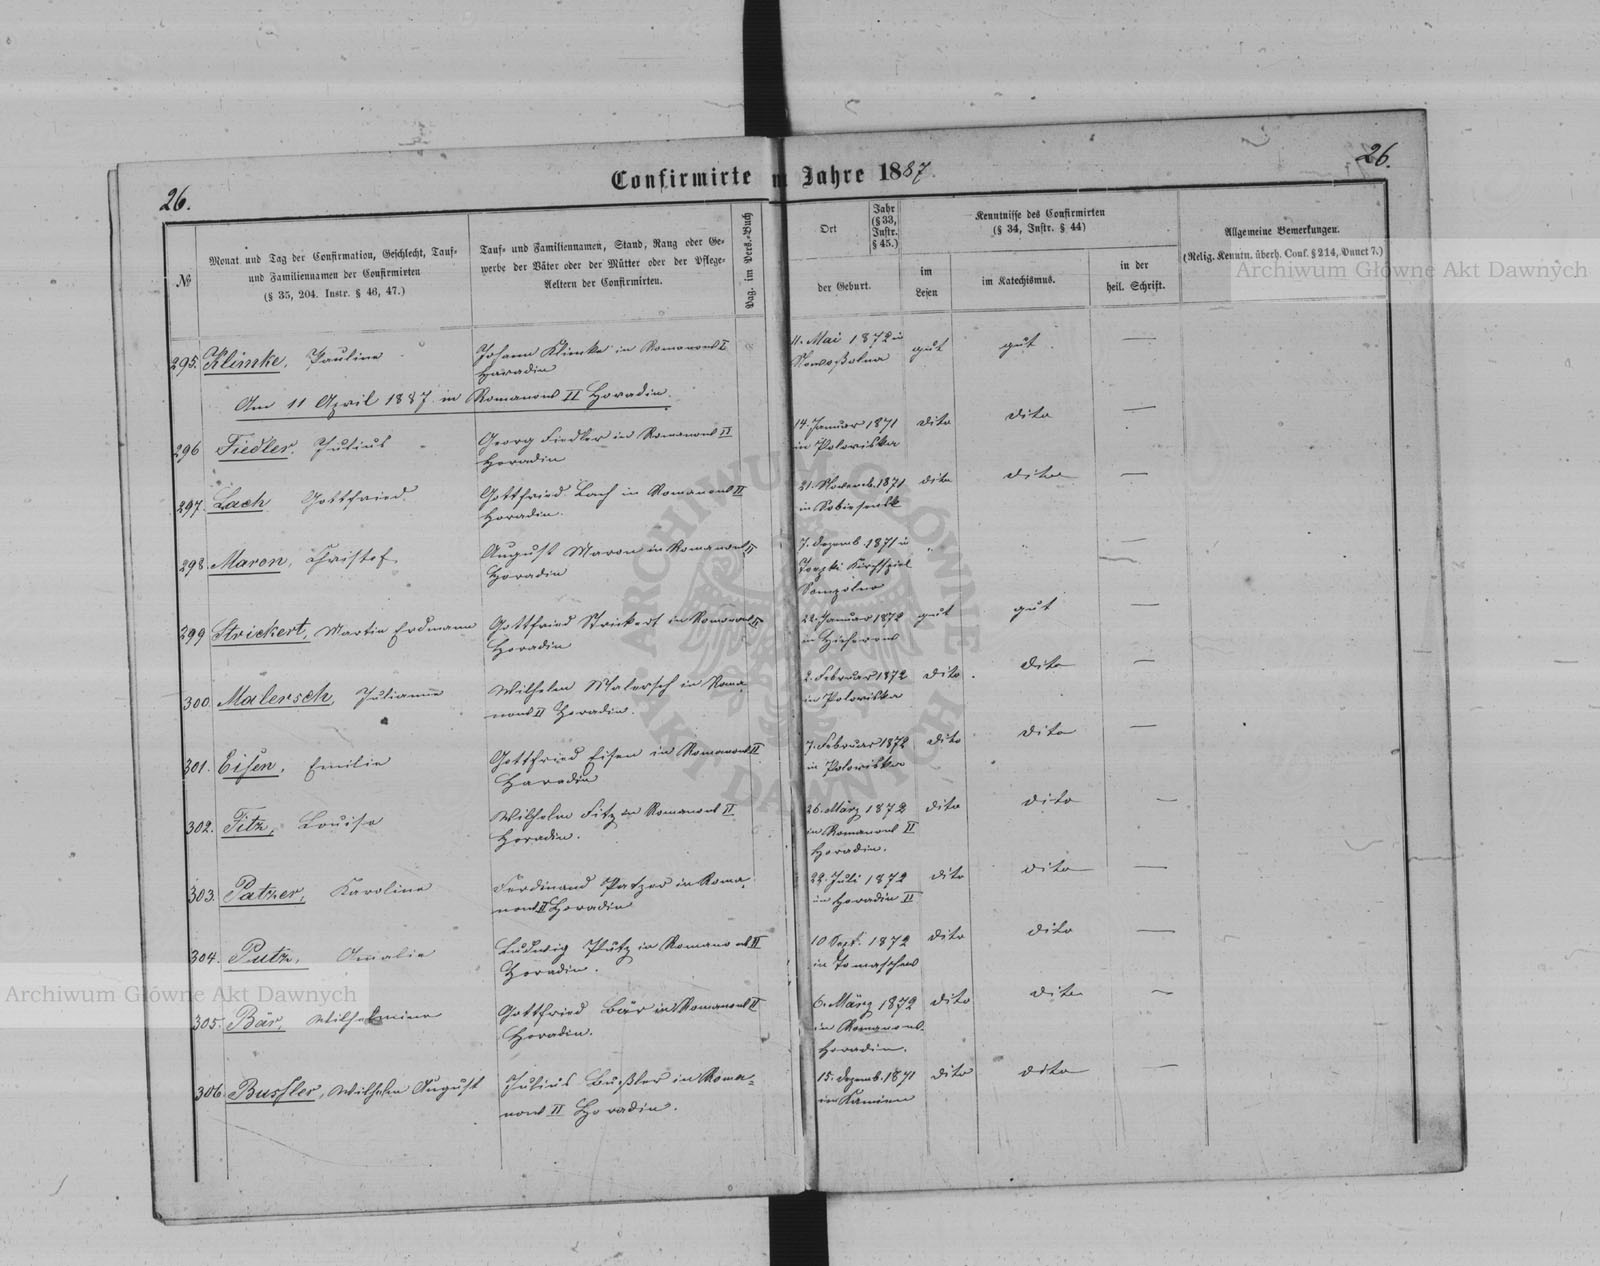 26.
Confirmirte im Jahre 1887.
26.
№
Monat und Tag der Confirmation, Geschlecht, Tauf-
und Familiennamen der Confirmirten
(§ 35, 204. Instr. § 46, 47.)
Tauf- und Familiennamen, Stand, Rang oder Ge-
werbe der Väter oder der Mütter oder der Pflege-
Aeltern der Confirmirten.
Pag. im Pers.-Buch
Ort
Jahr
(§ 33,
Instr.
§ 45.)
der Geburt.
Kenntnisse des Confirmirten
(§ 34, Instr. § 44)
im
Lesen
im Katechismus.
in der
heil. Schrift.
Allgemeine Bemerkungen.
(Relig. Kenntn. überh. Conf. § 214, Punct 7.)
Archiwum Główne Akt Dawnych
295. Klimke, Pauline
Johann Klimke in Romanow I
Horadin
11. Mai 1872 in
gut gut —
Am 11 April 1887 in Romanow II Horadin.
296 Fiedler, Julius
Georg Fiedler in Romanow II
Horadin
14. Januar 1871
in Polowiska
dito dito —
297. Lach Gottfried
Gottfried Lach in Romanow II
Horadin.
21. Novemb. 1871
in
dito dito —
298. Maron, Christof
August Maron in Romanow II
Horadin
7. Dezemb. 1871 in
Kirchspiel
Sompolno
" " —
299 Strickert, Martin Erdmann
Gottfried Strickert in Romanow II
Horadin
22. Januar 1872
in
gut gut —
300. Malersch, Julianne
Wilhelm Malersch in Roma-
now II Horadin.
2. Februar 1872
in Polowiska
dito dito —
301. Eisen, Emilie
Gottfried Eisen in Romanow II
Horadin
7. Februar 1872
in Polowiska
dito dito —
302. Fitz, Louise
Wilhelm Fitz in Romanow II
Horadin.
26. März 1872
in Romanow II
Horadin.
dito dito —
303. Patzer, Karoline
Ferdinand Patzer in Roma-
now II Horadin
22. Juli 1872
in Horadin II
dito dito —
304. Putz, Amalie
Ludwig Putz in Romanow II
Horadin.
10 Sept. 1872
in Tomaschew
dito dito —
305. Bär, Wilhelmine
Gottfried Bär in Romanow II
Horadin.
6. März 1872
in Romanow
Horadin.
dito dito —
306. Bussler, Wilhelm August
Julius Bußler in Roma-
now II Horadin.
15. Dezemb. 1871
in Kamien
dito dito —
ARCHIWUM GŁÓWNE AKT DAWNYCH
Archiwum Główne Akt Dawnych